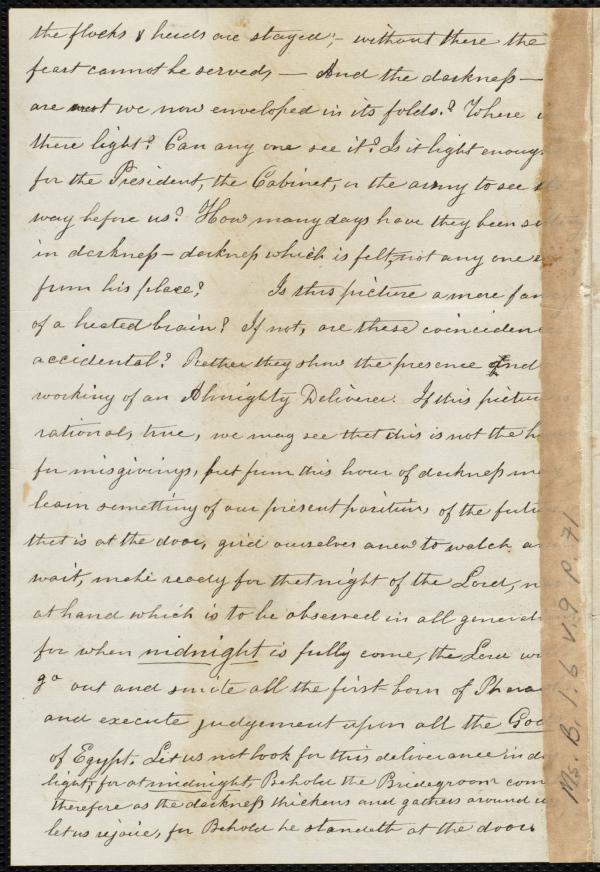 the flocks & herds are stayed;- without there the
feast cannot be served, — And the darkness —
are not we now enveloped in its folds? Where
there light? Can any one see it? Is it light enoug
for the President, the Cabinet, or the army to see
way before us? How many days have they been
in darkness — darkness which is felt, not any one
from his place? Is this picture a mere fan
of a heated brain? If not, are these coinciden
accidental? Rather they show the presence and
working of an Almighty Deliverer. If this pictur
rational, true, we may see that this is not the
for misgivings, but from this hour of darkness
learn something of our present position, of the futu
that is at the door, gird ourselves anew to watch
wait, make ready for that night of the Lord,
at hand which is to be observed in all genera
for when midnight is fully come, the Lord
go out and smite all the first-born of Phara
and execute judgement upon all the God
of Egypt. Let us not look for this deliverance in
light, for at midnight, Behold the Bridegroom com
therefore as the darkness thickens and gathers around
let us rejoice, for Behold he standeth at the door.
Ms. B. 1.6 v.9 p. 71